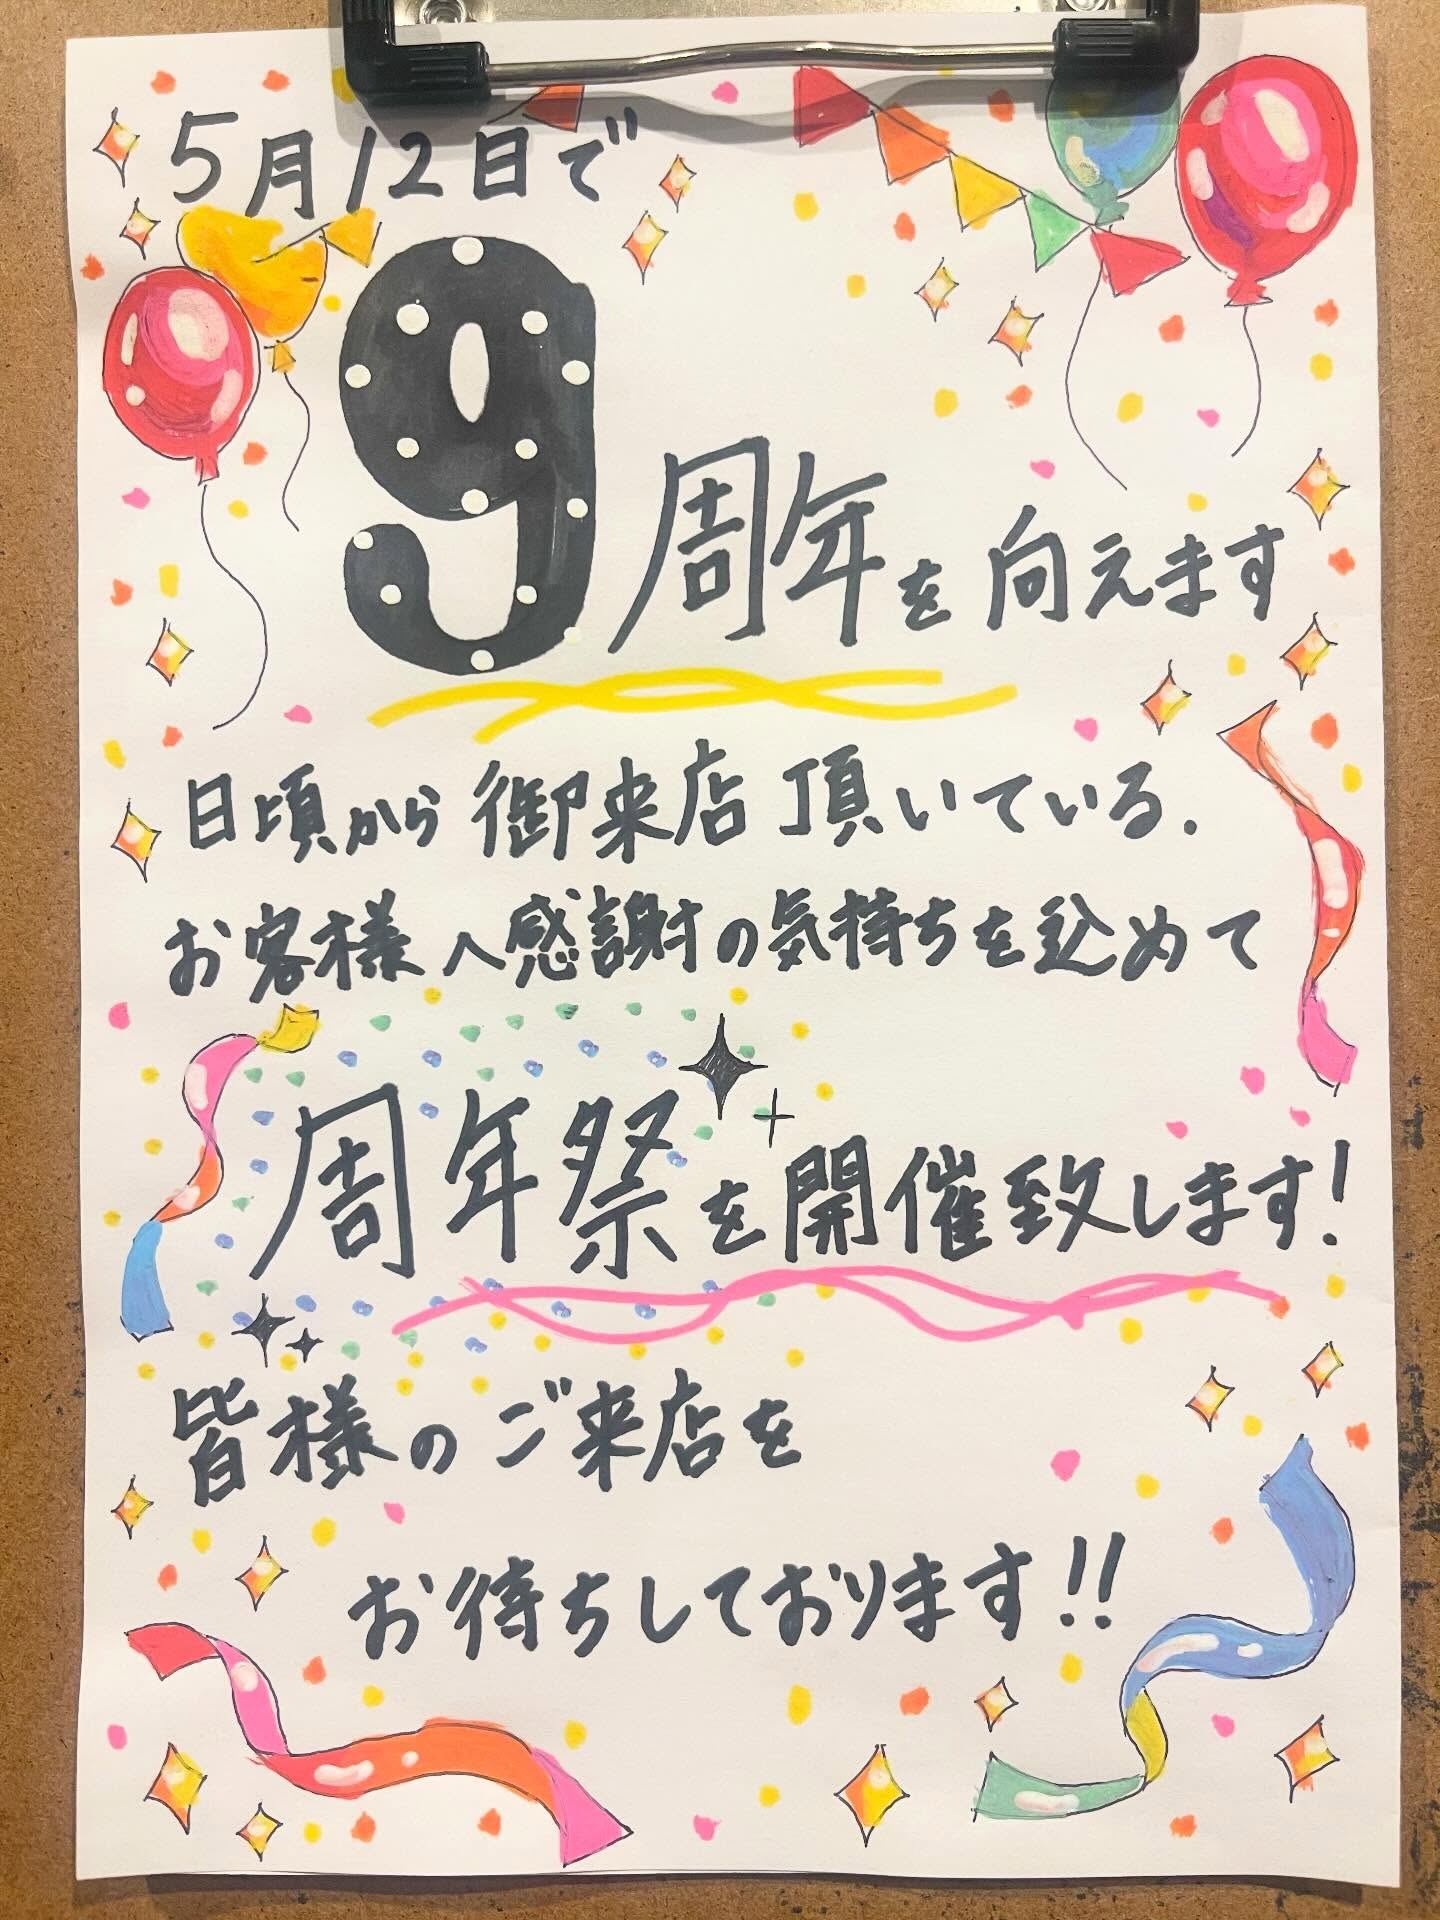 5月12日で
9周年を向えます
日頃から御来店頂いている.
お客様へ感謝の気持ちを込めて
周年祭を開催致します!
皆様のご来店を
お待ちしております!!